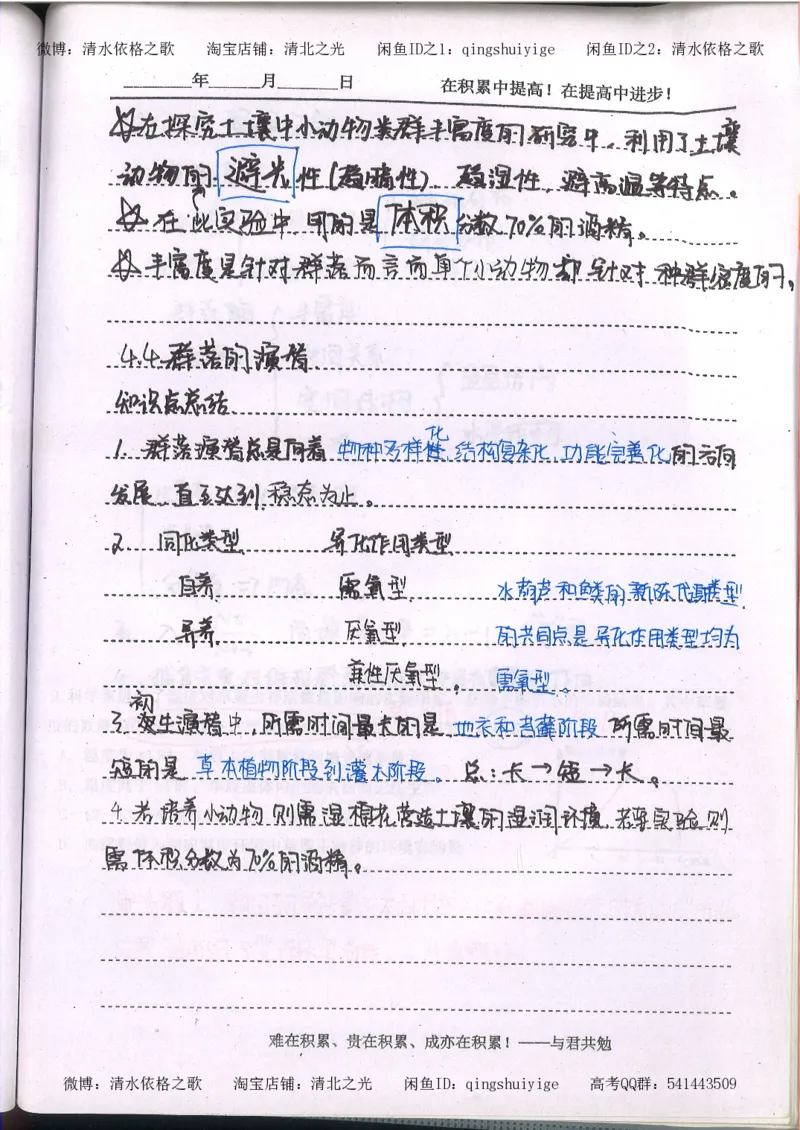 微博：清水依格之歌 淘宝店铺：清北之光 闲鱼ID之1：qingshuiyige 闲鱼ID之2：清水依格之歌
年 月 日 在积累中提高！在提高中进步！
在探究土壤中小动物类群丰富度的研究中，利用了土壤
动物的避光性（趋暗性）、趋湿性、避高温等特点。
在此实验中用的是体积分数70%的酒精。
丰富度是针对群落而言而单个小动物都针对种群密度的。
4.4 群落的演替
知识点总结
1. 群落演替总是向着物种多样化、结构复杂化、功能完善化的方向
发展，直至达到稳态为止。
2. 同化类型 异化作用类型
自养 需氧型 水葫芦和鱼类的新陈代谢类型
异养 厌氧型 的共同点是异化作用类型均为
兼性厌氧型。 需氧型。
3. 初生演替中，所需时间最长的是地衣和苔藓阶段，所需时间最
短的是草本植物阶段到灌木阶段。总：长→短→长。
4. 若培养小动物，则需湿棉花营造土壤的湿润环境，若要实验则
需体积分数为70%的酒精。
难在积累、贵在积累、成亦在积累！——与君共勉
微博：清水依格之歌 淘宝店铺：清北之光 闲鱼ID：qingshuiyige 高考QQ群：541443509